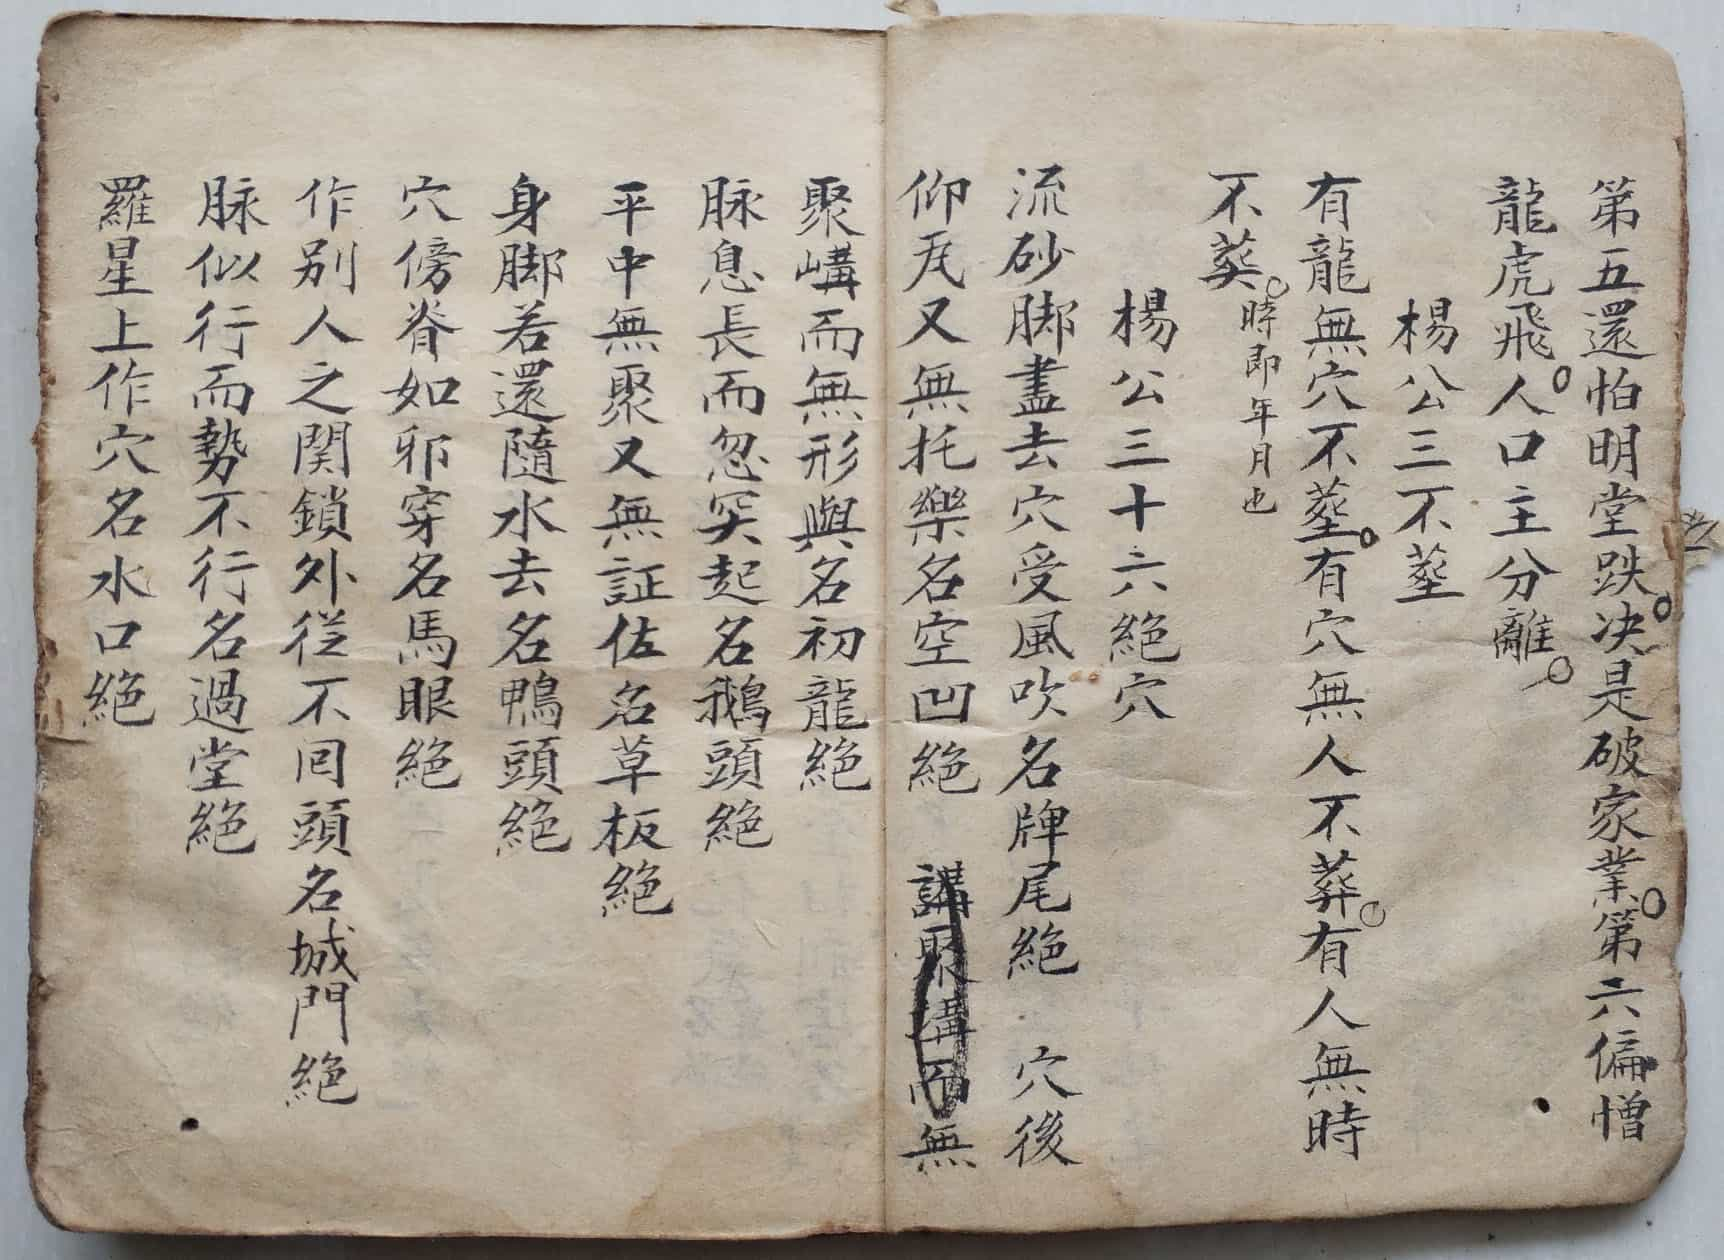 第五還怕明堂跌决是破家業第六偏憎
龍虎飛人口主分離
楊公三不塟
有龍無穴不塟有穴無人不葬有人無時
不葬時即年月也
楊公三十六絕穴
流砂脚盡去穴受風吹名牌尾絕 穴後
仰瓦又無托樂名空凹絕 講聚構而無
聚嶹而無形與名初龍絕
脉息長而忽突起名鵝頭絕
平中無聚又無証佐名草板絕
身脚若還隨水去名鴨頭絕
穴傍脊如邪穿名馬眼絕
作別人之関鎖外從不囘頭名城門絕
脉似行而勢不行名過堂絕
羅星上作穴名水口絕